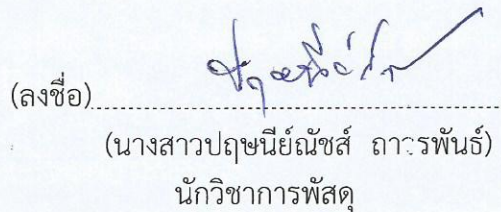 (ลงชื่อ)
(นางสาวปฤษนีย์ณัชส์
นักวิชาการพัสดุ